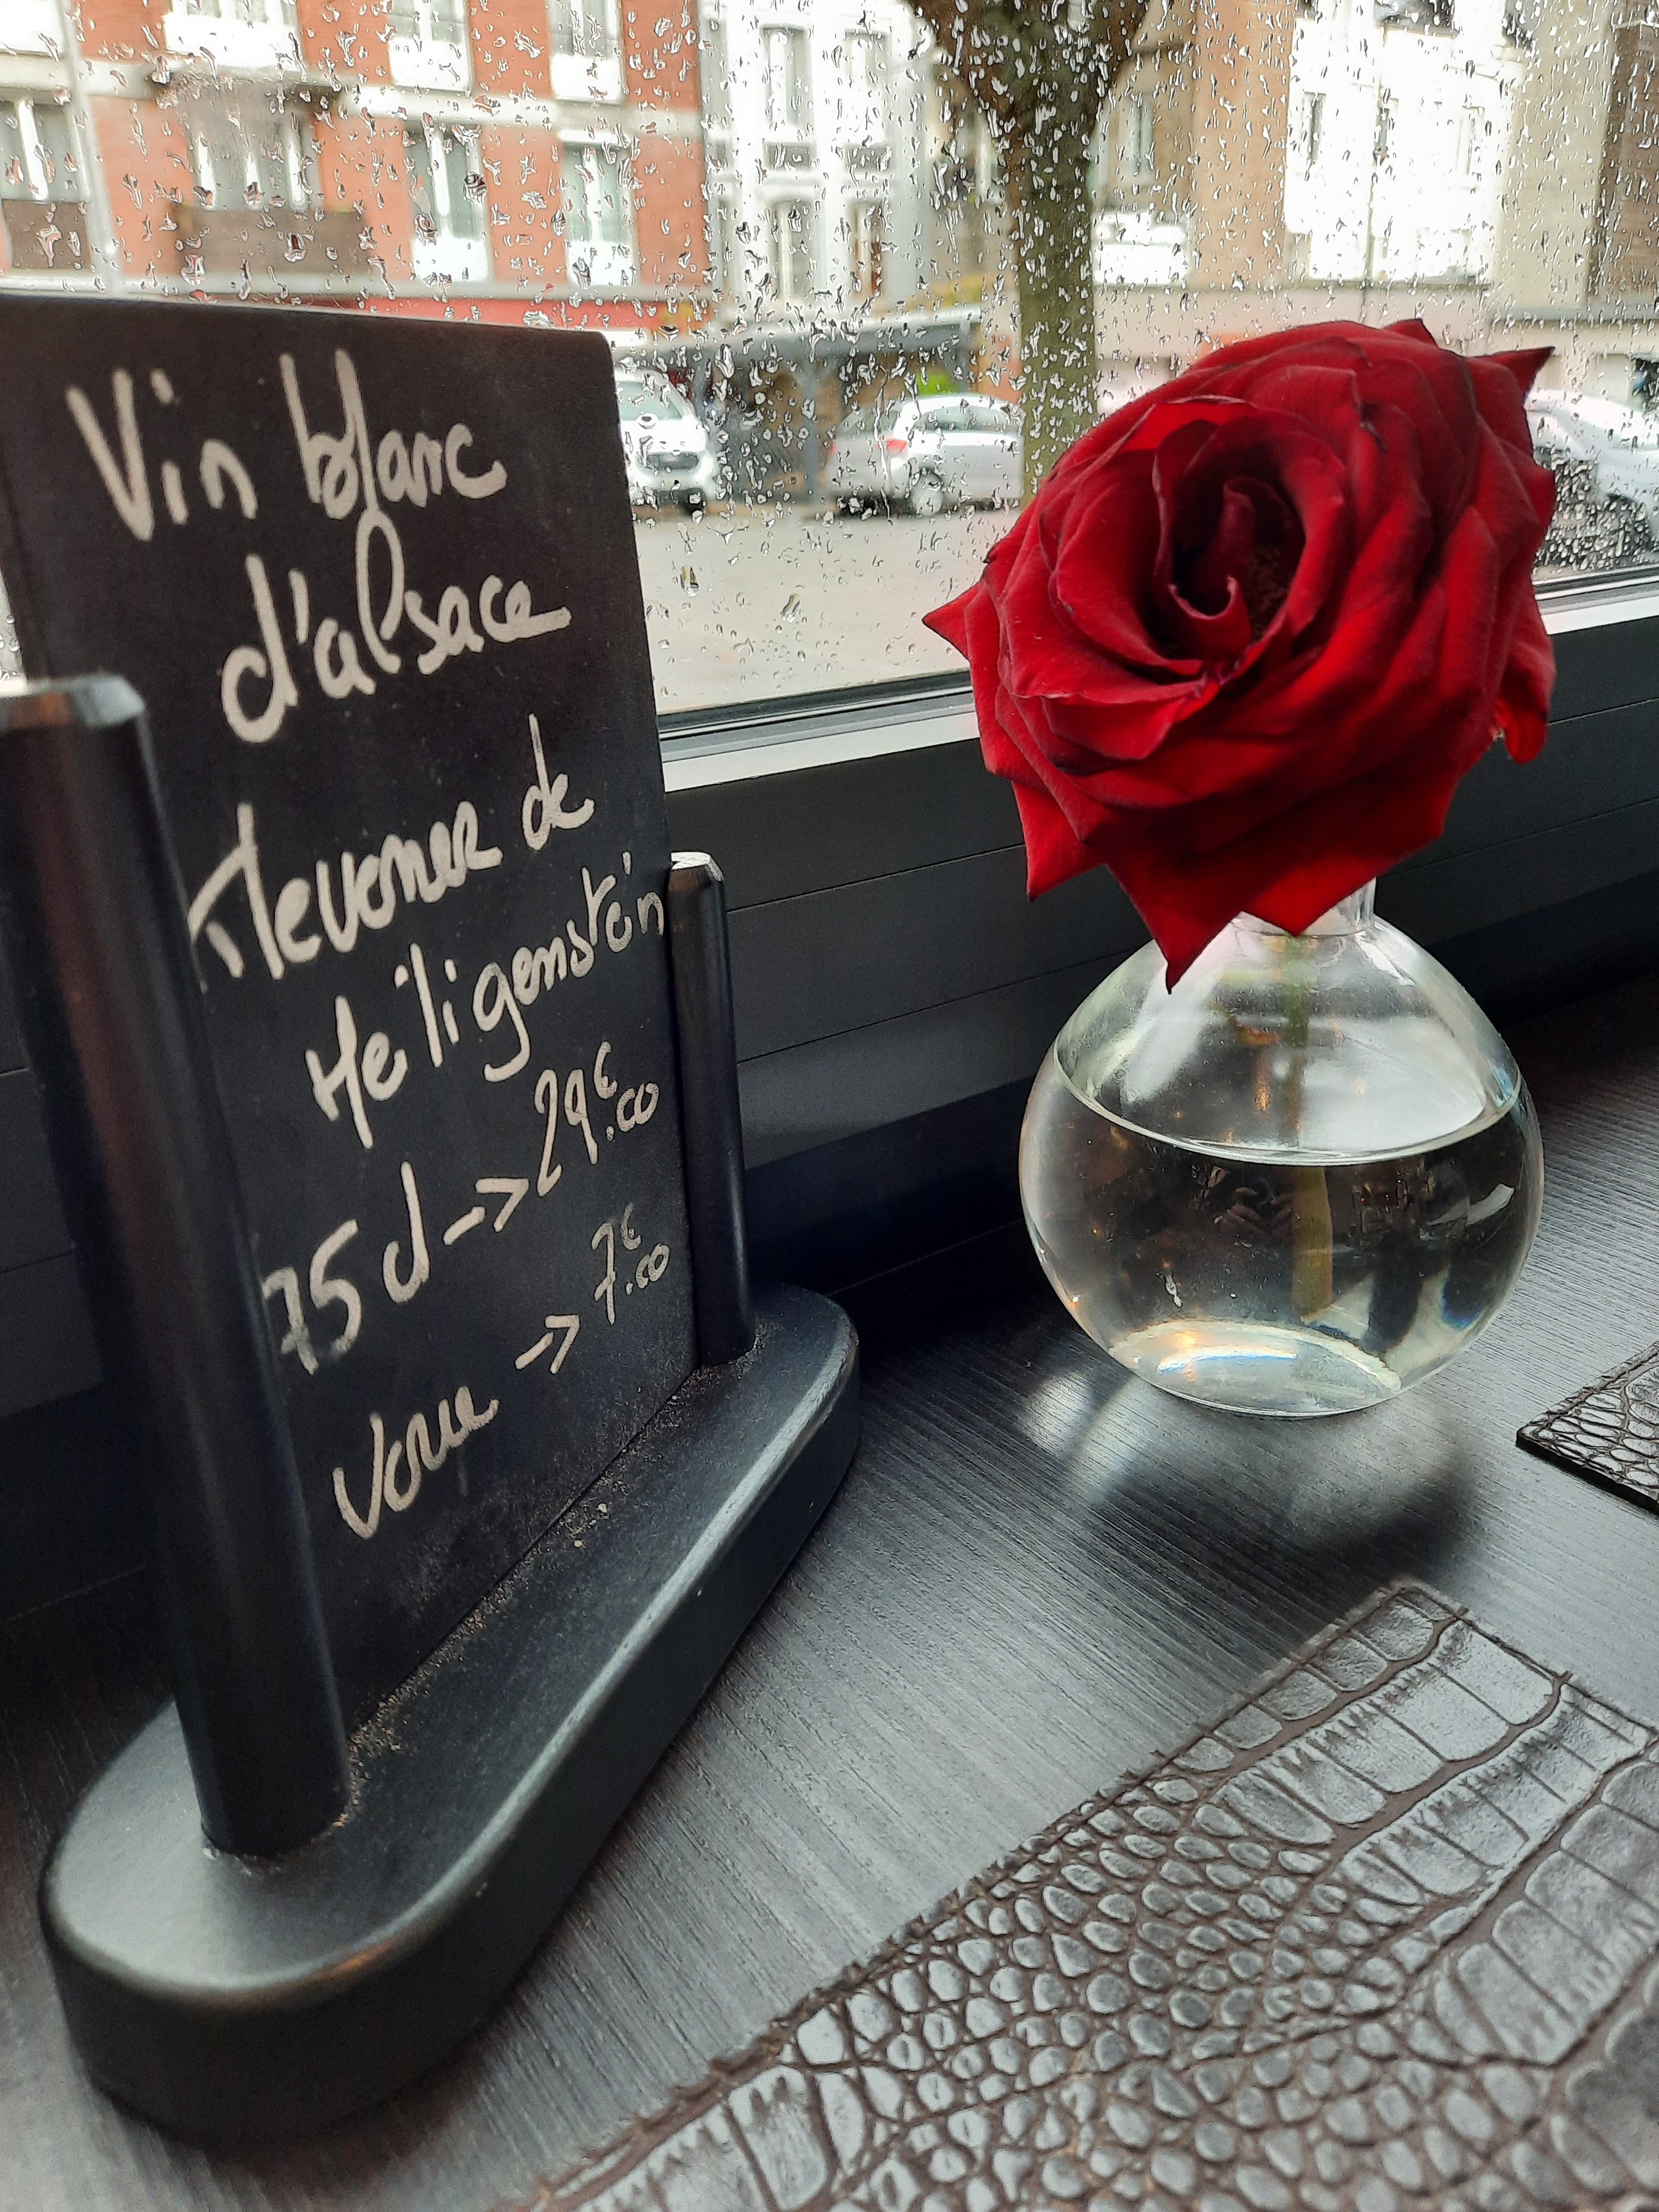 Vin blanc
d'alsace
Klevener de
Heiligenstein
75 cl -> 29€.00
Verre -> 7€.00